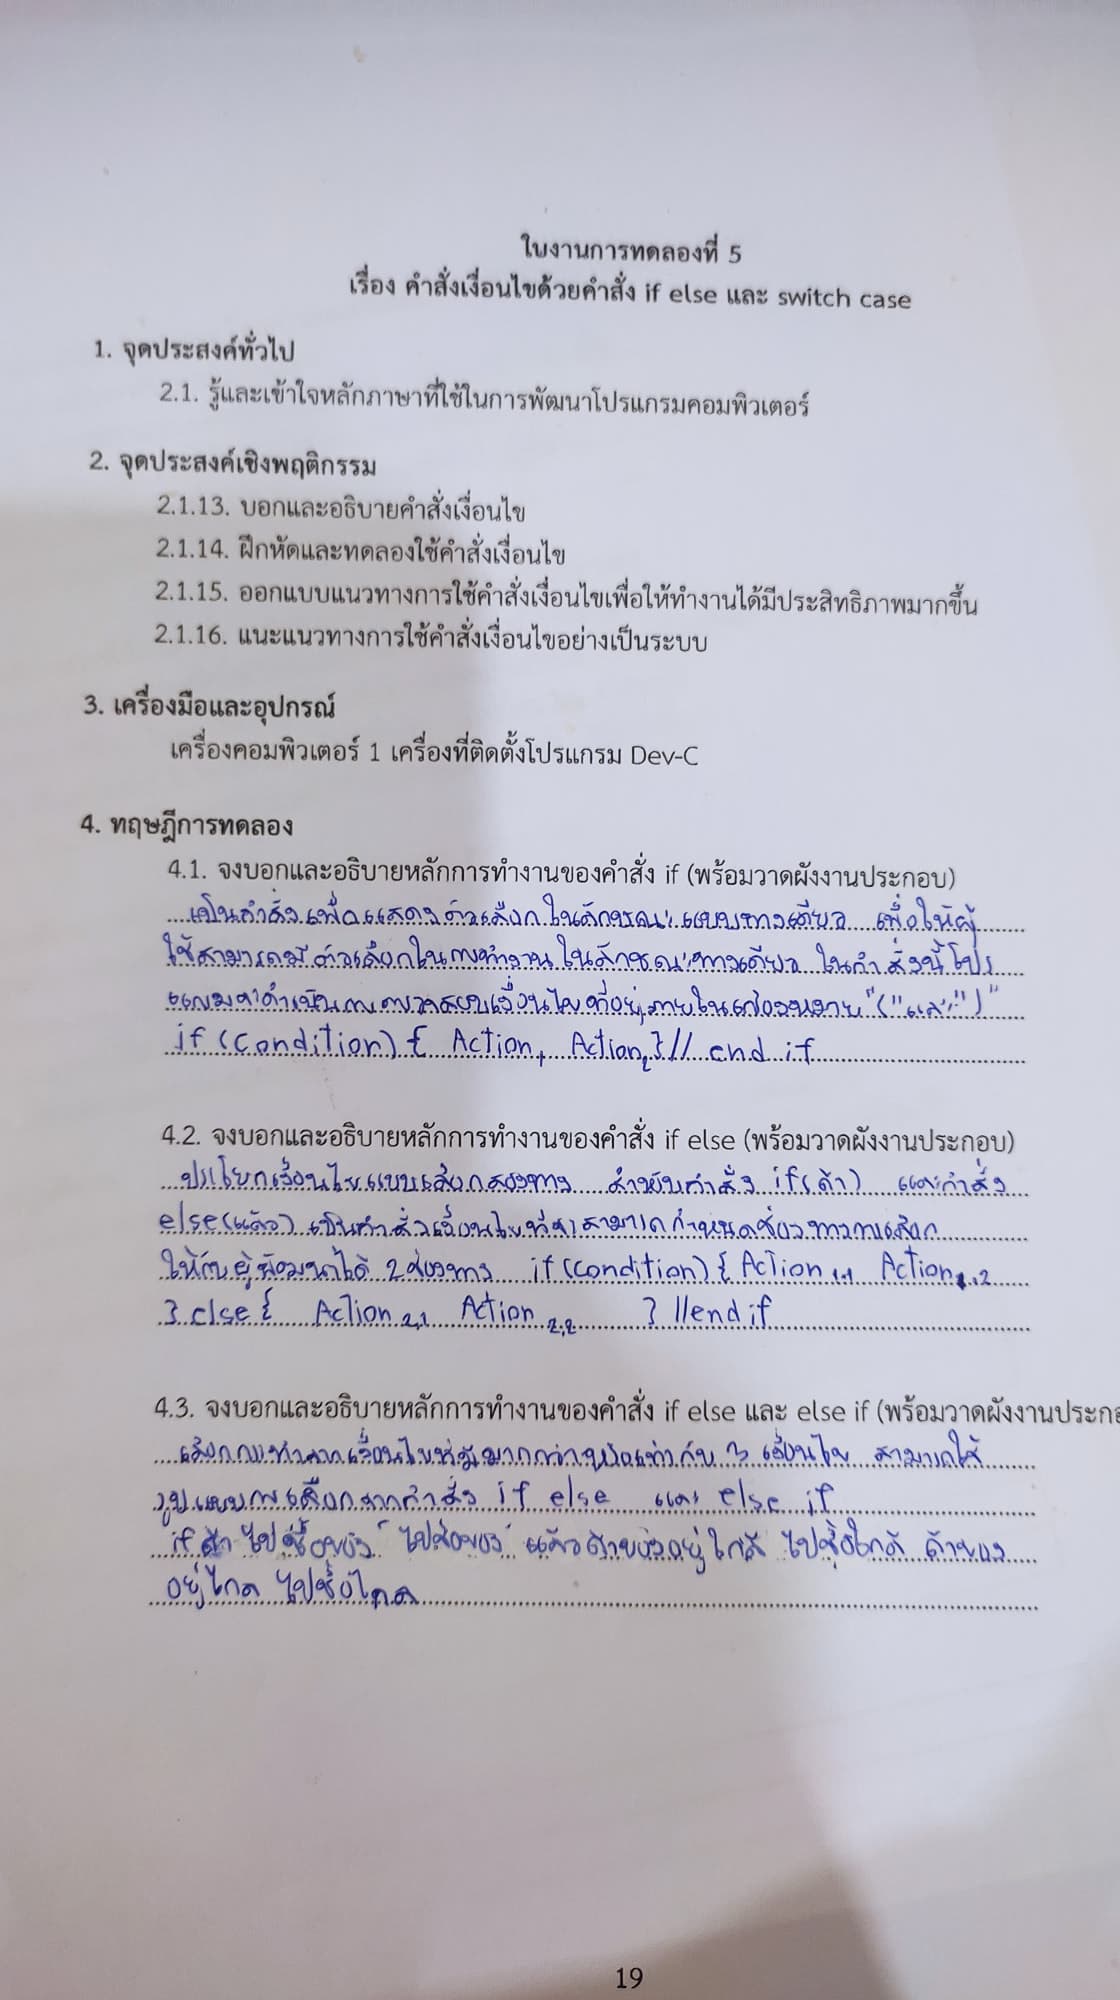 ใบงานการทดลองที่ 5
เรื่อง คำสั่งเงื่อนไขด้วยคำสั่ง if else และ switch case
1. จุดประสงค์ทั่วไป
2.1. รู้และเข้าใจหลักภาษาที่ใช้ในการพัฒนาโปรแกรมคอมพิวเตอร์
2. จุดประสงค์เชิงพฤติกรรม
2.1.13. บอกและอธิบายคำสั่งเงื่อนไข
2.1.14. ฝึกหัดและทดลองใช้คำสั่งเงื่อนไข
2.1.15. ออกแบบแนวทางการใช้คำสั่งเงื่อนไขเพื่อให้ทำงานได้มีประสิทธิภาพมากขึ้น
2.1.16. แนะแนวทางการใช้คำสั่งเงื่อนไขอย่างเป็นระบบ
3. เครื่องมือและอุปกรณ์
เครื่องคอมพิวเตอร์ 1 เครื่องที่ติดตั้งโปรแกรม Dev-C
4. ทฤษฎีการทดลอง
4.1. จงบอกและอธิบายหลักการทำงานของคำสั่ง if (พร้อมวาดผังงานประกอบ)
เป็นคำสั่งเพื่อแสดงตัวเลือกในลักษณะแบบทางเดียว เพื่อให้ผู้
ใช้สามารถมีตัวเลือกในการทำงานในลักษณะทางเดียว ในคำสั่งนี้โปร
แกรมจะดำเนินการตรวจสอบเงื่อนไขที่อยู่ภายในเครื่องหมาย "("และ")"
if (condition) { Action1 Action2 } // end if
4.2. จงบอกและอธิบายหลักการทำงานของคำสั่ง if else (พร้อมวาดผังงานประกอบ)
ประโยคเงื่อนไขแบบเลือกสองทาง สำหรับคำสั่ง if(ถ้า) และคำสั่ง
else(แล้ว) เป็นคำสั่งเงื่อนไขที่สามารถกำหนดช่องทางการเลือก
ให้กับผู้พัฒนาได้ 2 ช่องทาง if (condition) { Action1.1 Action1.2
} else { Action2.1 Action2.2 } //end if
4.3. จงบอกและอธิบายหลักการทำงานของคำสั่ง if else และ else if (พร้อมวาดผังงานประกอ
เลือกกระทำจากเงื่อนไขที่มีมากกว่าหรือเท่ากับ 3 เงื่อนไข สามารถใช้
รูปแบบการเลือกจากคำสั่ง if else และ else if
if ถ้า ไปซื้อของ ไปซื้อของ แล้วถ้าของอยู่ใกล้ ไปซื้อใกล้ ถ้าของ
อยู่ไกล ไปซื้อไกล
19